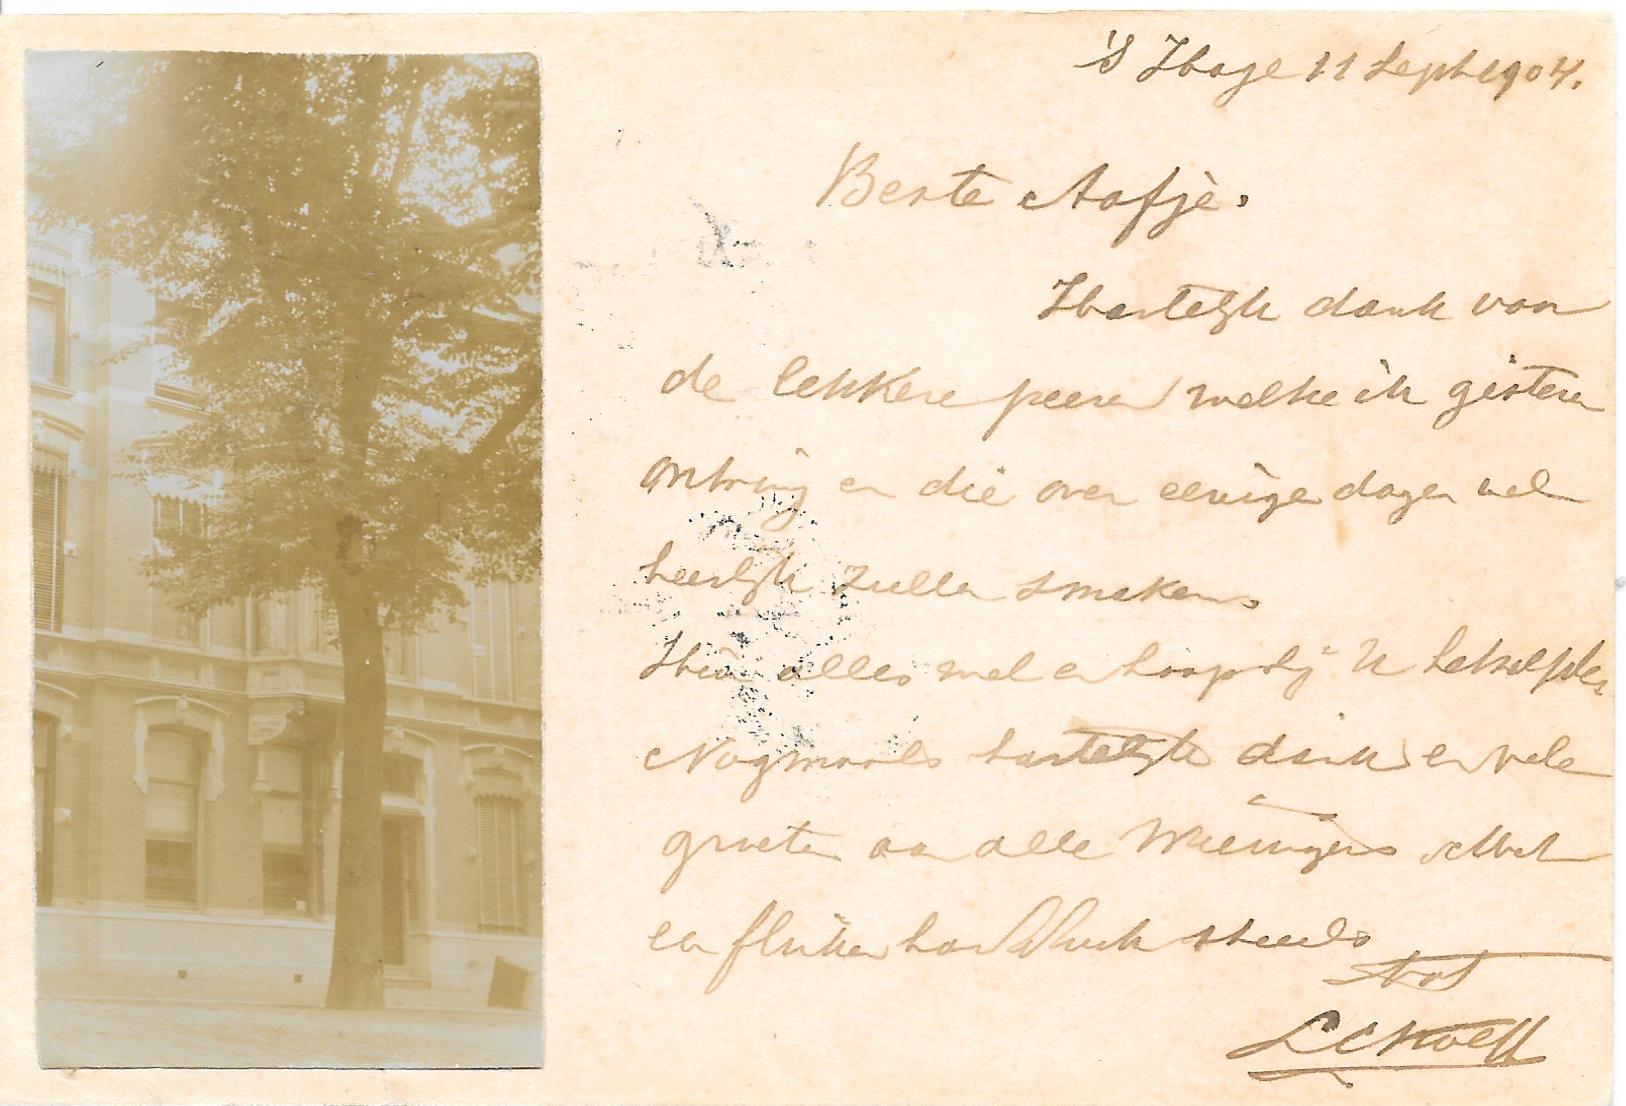 's Hage 11 Sept 1904.
Beste Aafje.
Hartelijk dank voor
de lekkere peeren welke ik gisteren
ontving en die over eenige dagen wel
heerlijk zullen smaken.
Hier alles wel en hoop bij U hetzelfde.
Nogmaals hartelijk dank en vele
groeten aan alle Wieringers
een flinken handdruk steeds